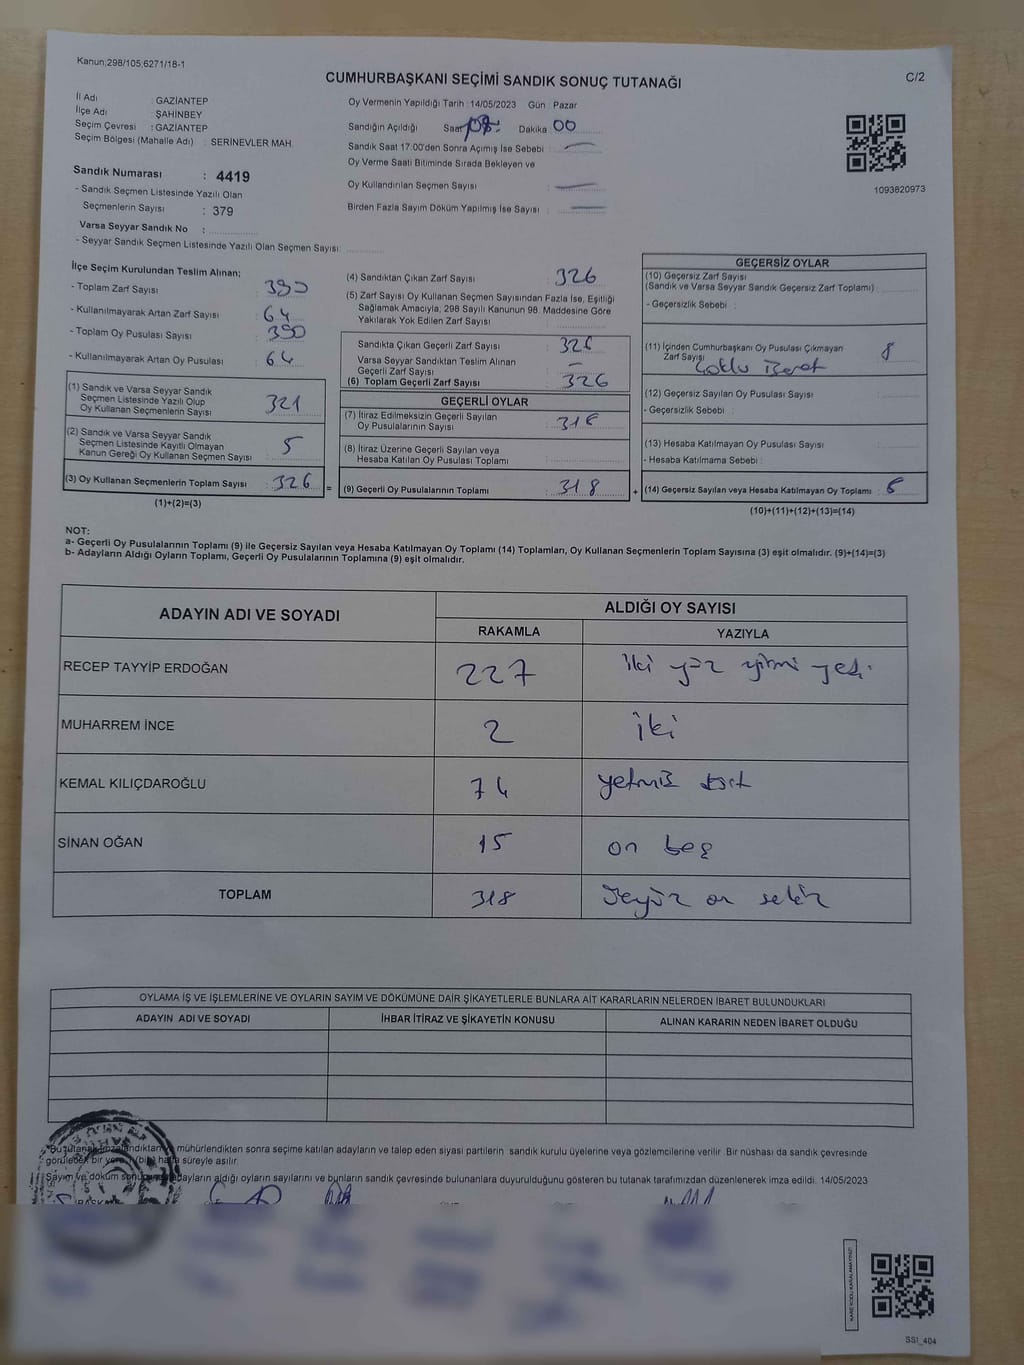 Kanun;298/105;6271/18-1
CUMHURBAŞKANI SEÇİMİ SANDIK SONUÇ TUTANAĞI
C/2
İl Adı : GAZİANTEP
İlçe Adı : ŞAHİNBEY
Seçim Çevresi : GAZİANTEP
Seçim Bölgesi (Mahalle Adı) : SERİNEVLER MAH.
Sandık Numarası : 4419
- Sandık Seçmen Listesinde Yazılı Olan
Seçmenlerin Sayısı : 379
Varsa Seyyar Sandık No :
- Seyyar Sandık Seçmen Listesinde Yazılı Olan Seçmen Sayısı:
Oy Vermenin Yapıldığı Tarih :14/05/2023 Gün : Pazar
Sandığın Açıldığı Saat 08: Dakika 00
Sandık Saat 17.00'den Sonra Açımış İse Sebebi :
Oy Verme Saati Bitiminde Sırada Bekleyen ve
Oy Kullandırılan Seçmen Sayısı :
Birden Fazla Sayım Döküm Yapılmış İse Sayısı :
1093820973
İlçe Seçim Kurulundan Teslim Alınan;
- Toplam Zarf Sayısı : 390
- Kullanılmayarak Artan Zarf Sayısı : 64
- Toplam Oy Pusulası Sayısı : 390
- Kullanılmayarak Artan Oy Pusulası : 64
(1) Sandık ve Varsa Seyyar Sandık
Seçmen Listesinde Yazılı Olup
Oy Kullanan Seçmenlerin Sayısı : 321
(2) Sandık ve Varsa Seyyar Sandık
Seçmen Listesinde Kayıtlı Olmayan
Kanun Gereği Oy Kullanan Seçmen Sayısı : 5
(3) Oy Kullanan Seçmenlerin Toplam Sayısı : 326
(1)+(2)=(3)
(4) Sandıktan Çıkan Zarf Sayısı : 326
(5) Zarf Sayısı Oy Kullanan Seçmen Sayısından Fazla İse, Eşitliği
Sağlamak Amacıyla, 298 Sayılı Kanunun 98. Maddesine Göre
Yakılarak Yok Edilen Zarf Sayısı :
Sandıkta Çıkan Geçerli Zarf Sayısı : 326
Varsa Seyyar Sandıktan Teslim Alınan
Geçerli Zarf Sayısı : –
(6) Toplam Geçerli Zarf Sayısı : 326
GEÇERLİ OYLAR
(7) İtiraz Edilmeksizin Geçerli Sayılan
Oy Pusulalarının Sayısı : 318
(8) İtiraz Üzerine Geçerli Sayılan veya
Hesaba Katılan Oy Pusulası Toplamı :
= (9) Geçerli Oy Pusulalarının Toplamı : 318
GEÇERSİZ OYLAR
(10) Geçersiz Zarf Sayısı
(Sandık ve Varsa Seyyar Sandık Geçersiz Zarf Toplamı) :
- Geçersizlik Sebebi :
(11) İçinden Cumhurbaşkanı Oy Pusulası Çıkmayan 8
Zarf Sayısı
(12) Geçersiz Sayılan Oy Pusulası Sayısı
- Geçersizlik Sebebi :
(13) Hesaba Katılmayan Oy Pusulası Sayısı
- Hesaba Katılmama Sebebi :
+ (14) Geçersiz Sayılan veya Hesaba Katılmayan Oy Toplamı : 8
(10)+(11)+(12)+(13)=(14)
NOT:
a- Geçerli Oy Pusulalarının Toplamı (9) ile Geçersiz Sayılan veya Hesaba Katılmayan Oy Toplamı (14) Toplamları, Oy Kullanan Seçmenlerin Toplam Sayısına (3) eşit olmalıdır. (9)+(14)=(3)
b- Adayların Aldığı Oyların Toplamı, Geçerli Oy Pusulalarının Toplamına (9) eşit olmalıdır.
ADAYIN ADI VE SOYADI
ALDIĞI OY SAYISI
RAKAMLA YAZIYLA
RECEP TAYYİP ERDOĞAN 227 iki yüz yirmi yedi
MUHARREM İNCE 2 iki
KEMAL KILIÇDAROĞLU 74 yetmiş dört
SİNAN OĞAN 15 on beş
TOPLAM 318 üçyüz on sekiz
OYLAMA İŞ VE İŞLEMLERİNE VE OYLARIN SAYIM VE DÖKÜMÜNE DAİR ŞİKAYETLERLE BUNLARA AİT KARARLARIN NELERDEN İBARET BULUNDUKLARI
ADAYIN ADI VE SOYADI İHBAR İTİRAZ VE ŞİKAYETİN KONUSU ALINAN KARARIN NEDEN İBARET OLDUĞU
Bu tutanak imzalandıktan mühürlendikten sonra seçime katılan adayların ve talep eden siyasi partilerin sandık kurulu üyelerine veya gözlemcilerine verilir. Bir nüshası da sandık çevresinde
görülecek bir yere bir hafta süreyle asılır.
Sayım ve döküm sonu adayların aldığı oyların sayılarını ve bunların sandık çevresinde bulunanlara duyurulduğunu gösteren bu tutanak tarafımızdan düzenlenerek imza edildi. 14/05/2023
SSI_404